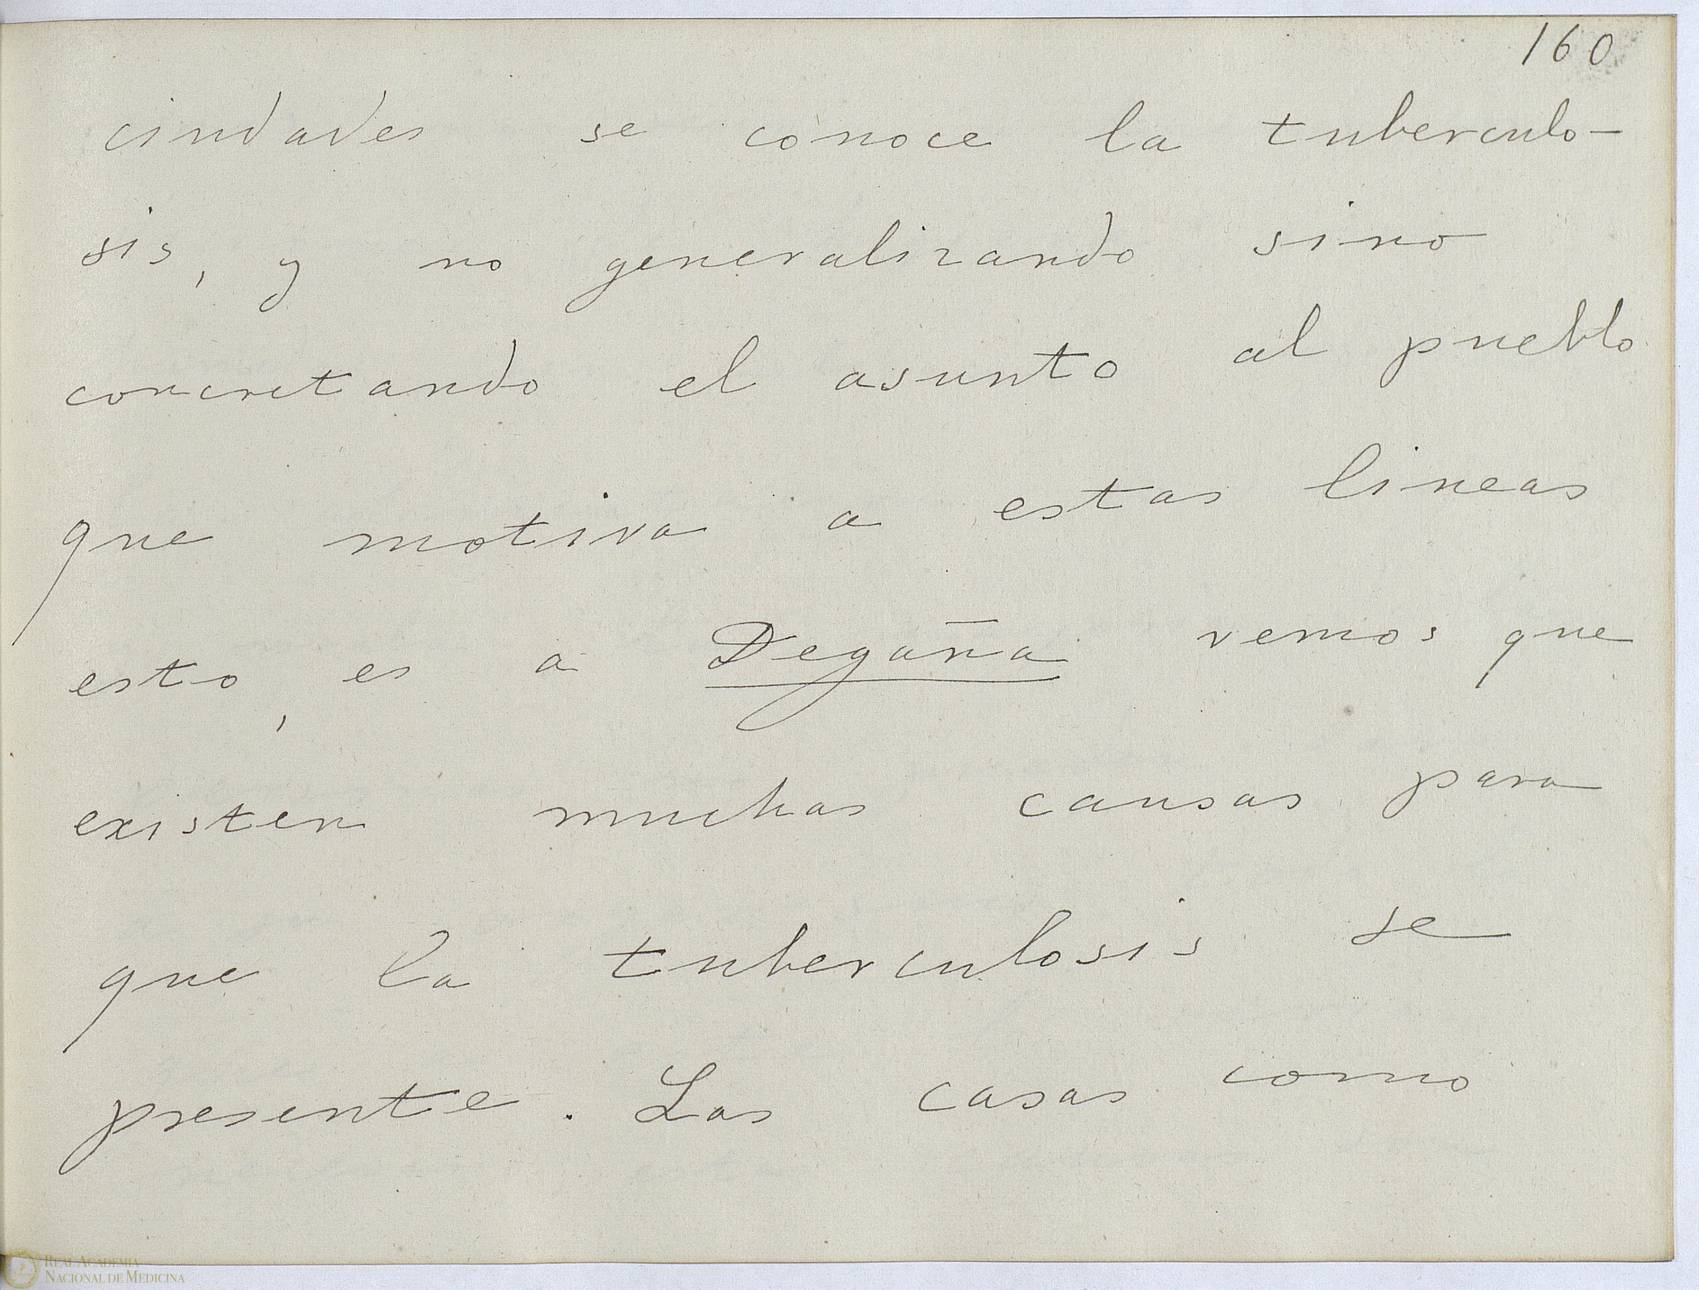 160
ciudades se conoce la tuberculo-
sis, y no generalizando sino
concretando el asunto al pueblo
que motiva a estas lineas
esto, es a Degaña vemos que
existen muchas causas para
que la tuberculosis se
presente. Las casas como
REAL ACADEMIA
NACIONAL DE MEDICINA